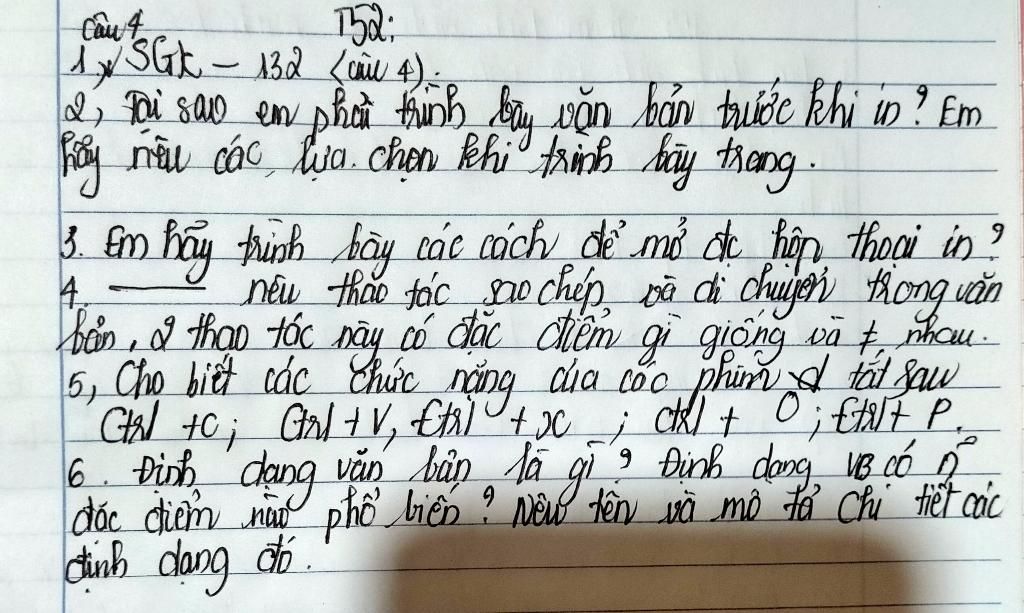 Câu 4 T52:
1, SGK - 132 (câu 4).
2, Tại sao em phải trình bày văn bản trước khi in? Em
hãy nêu các lựa chọn khi trình bày trang.
3. Em hãy trình bày các cách để mở đc hộp thoại in?
4. ——— nêu thao tác sao chép và di chuyển trong văn
bản, 2 thao tác này có đặc điểm gì giống và ≠ nhau.
5, Cho biết các chức năng của các phím tắt sau
Ctrl + C; Ctrl + V, Ctrl + X ; Ctrl + O; Ctrl + P.
6. Định dạng văn bản là gì? Định dạng VB có n~
đặc điểm nào phổ biến? Nêu tên và mô tả chi tiết các
định dạng đó.